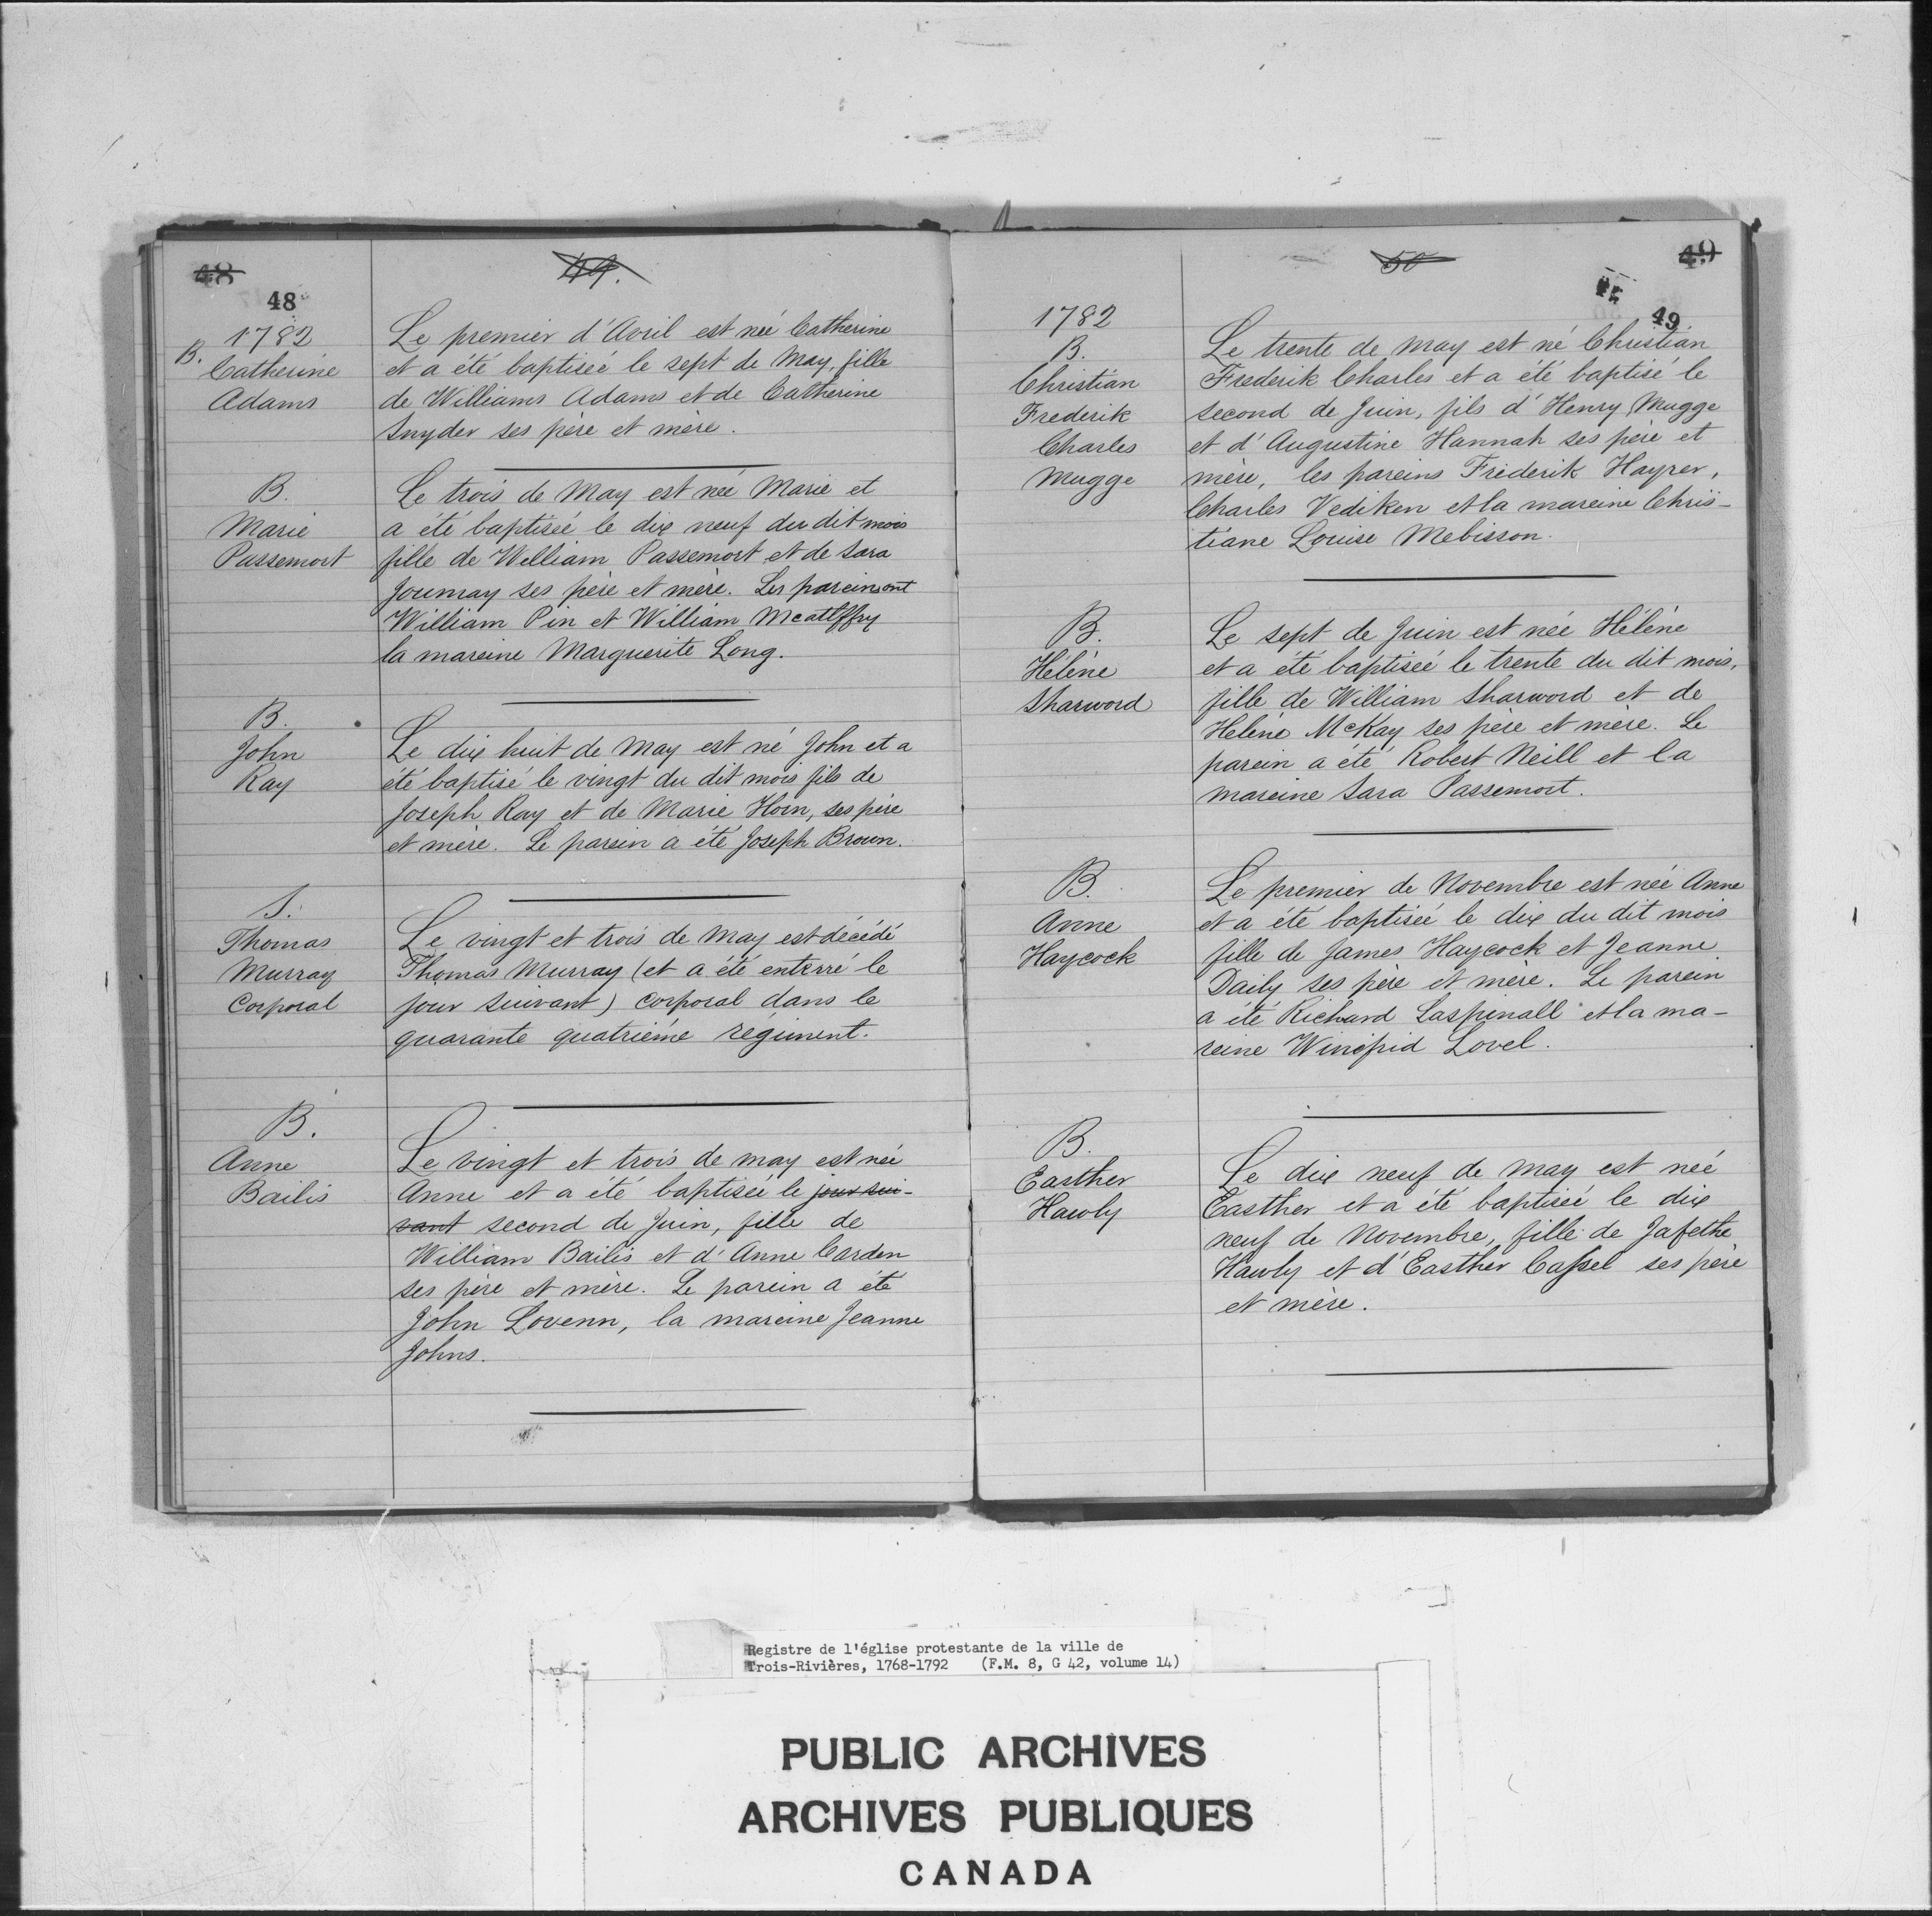 48
49.
48
1782
B.
Catherine
Adams
Le premier d'Avril est née Catherine
et a été baptisée le sept de May, fille
de Williams Adams et de Catherine
Snyder ses père et mère.
B.
Marie
Passemort
Le trois de May est née Marie et
a été baptisée le dix neuf du dit mois
fille de William Passemort et de Sara
Joumay ses père et mère. Les pareins ont
William Pin et William
la mareine Marguerite Long.
B.
John
Ray
Le dix huit de May est né John et a
été baptisé le vingt du dit mois fils de
Joseph Ray et de Marie Horn, ses père
et mère. Le parein a été Joseph Brown.
S.
Thomas
Murray
Corporal
Le vingt et trois de May est décédé
Thomas Murray (et a été enterré le
jour suivant) corporal dans le
quarante quatrième régiment.
B.
Anne
Bailis
Le vingt et trois de may est née
Anne et a été baptisée le jour sui-
vant second de Juin, fille de
William Bailis et d'Anne Carden
ses père et mère. Le parein a été
John Lovenn, la mareine Jeanne
Johns.
50
49
49
1782
B.
Christian
Frederik
Charles
Mugge
Le trente de may est né Christian
Frederik Charles et a été baptisé le
second de Juin, fils d'Henry Mugge
et d'Augustine Hannah ses père et
mère, les pareins Frederik Hayrer,
Charles Vediken et la mareine Chris-
tiane Louise Mebisson.
B.
Hélène
Sharword
Le sept de Juin est née Hélène
et a été baptisée le trente du dit mois,
fille de William Sharword et de
Helène McKay ses père et mère. Le
parein a été Robert Neill et la
mareine Sara Passemort.
B.
Anne
Haycock
Le premier de Novembre est née Anne
et a été baptisée le dix du dit mois
fille de James Haycock et Jeanne
Daily ses père et mère. Le parein
a été Richard Laspinall et la ma-
reine Winifrid Lovel.
B.
Easther
Hawly
Le dix neuf de May est née
Easther et a été baptisée le dix
neuf de Novembre, fille de Jafethe
Hawly et d'Easther Cassel ses père
et mère.
Registre de l'église protestante de la ville de
Trois-Rivières, 1768-1792 (F.M. 8, G 42, volume 14)
PUBLIC ARCHIVES
ARCHIVES PUBLIQUES
CANADA